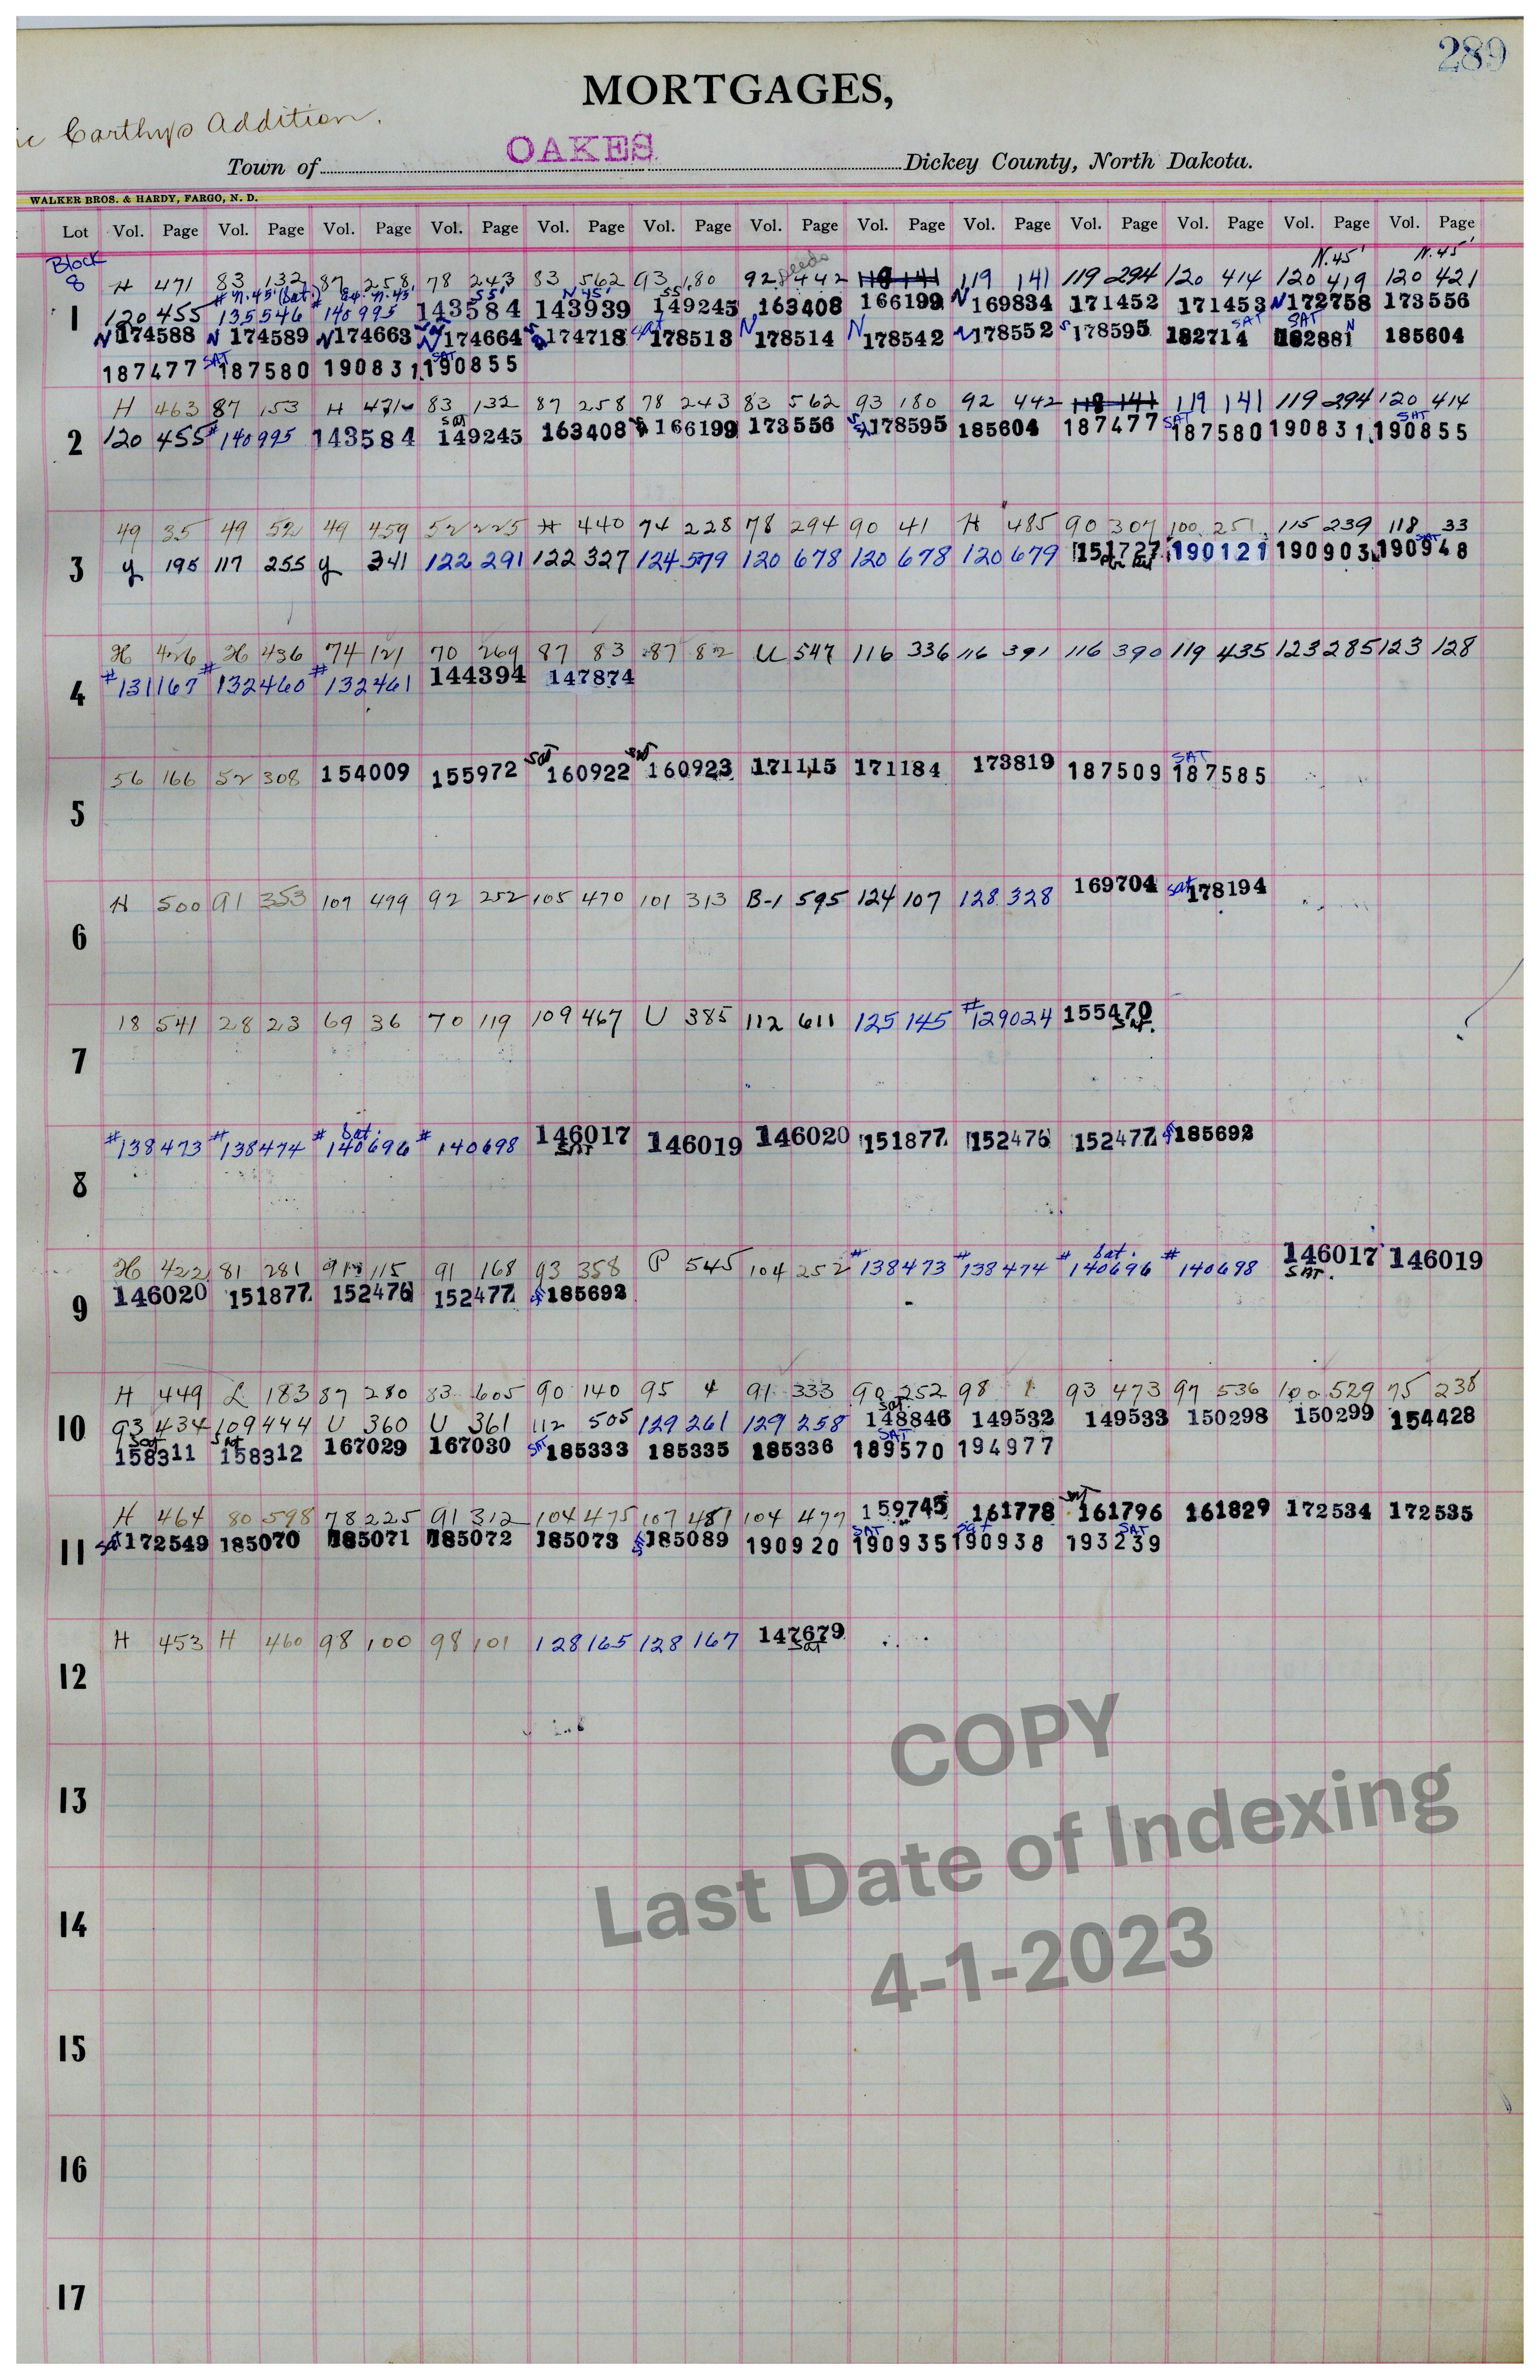 289
MORTGAGES,
ic Carthys Addition.
Town of OAKES Dickey County, North Dakota.
WALKER BROS. & HARDY, FARGO, N. D.
Lot Vol. Page Vol. Page Vol. Page Vol. Page Vol. Page Vol. Page Vol. Page Vol. Page Vol. Page Vol. Page Vol. Page Vol. Page Vol. Page
Block N.45' N.45'
8 H 471 83 132 87 258 78 243 83 562 93 180 92 442 119 141 119 294 120 414 120 419 120 421
1 120 455 #135546 #140995 143584 143939 149245 163408 166199 N 169834 171452 171453 N 172758 173556
N 174588 N 174589 N 174663 N 174664 174718 sat 178513 N 178514 N 178542 N 178552 S 178595 182714 SAT SAT 182881 N 185604
187477 SAT 187580 190831 SAT 190855
H 463 87 153 H 471 83 132 87 258 78 243 83 562 93 180 92 442 118 141 119 141 119 294 120 414
2 120 455 #140995 143584 sat 149245 163408 166199 173556 178595 185604 187477 SAT 187580 190831 SAT 190855
49 35 49 52 49 459 52 225 H 440 74 228 78 294 90 41 H 485 90 307 100 251 115 239 118 33
3 y 195 117 255 y 341 122 291 122 327 124 579 120 678 120 678 120 679 151727 190121 190903 SAT 190948
H 426 H 436 74 121 70 269 87 83 87 82 U 547 116 336 116 391 116 390 119 435 123 285 123 128
4 #131167 #132460 #132461 144394 147874
56 166 52 308 154009 155972 Sat 160922 sat 160923 171115 171184 173819 187509 SAT 187585
5
H 500 91 353 107 499 92 252 105 470 101 313 B-1 595 124 107 128 328 169704 sat 178194
6
18 541 28 23 69 36 70 119 109 467 U 385 112 611 125 145 #129024 155470 Sat.
7
#138473 #138474 # Sat. 140696 # 140698 146017 SAT 146019 146020 151877 152476 152477 185692
8
H 422 81 281 91 115 91 168 93 358 P 545 104 252 #138473 #138474 # Sat. 140696 # 140698 146017 SAT. 146019
9 146020 151877 152476 152477 185692
H 449 L 183 87 280 83 605 90 140 95 4 91 333 90 252 98 1 93 473 97 536 100 529 75 238
10 93 434 109 444 U 360 U 361 112 505 129 261 129 258 Sat. 148846 149532 149533 150298 150299 154428
Sat 158311 Sat 158312 167029 167030 SAT 185333 185335 185336 SAT 189570 194977
H 464 80 598 78 225 91 312 104 475 107 481 104 477 159745 161778 sat 161796 161829 172534 172535
11 sat 172549 185070 185071 185072 185073 185089 190920 SAT 190935 Sat 190938 SAT 193239
H 453 H 460 98 100 98 101 128 165 128 167 147679 Sat
12
13
14
15
16
17
COPY
Last Date of Indexing
4-1-2023